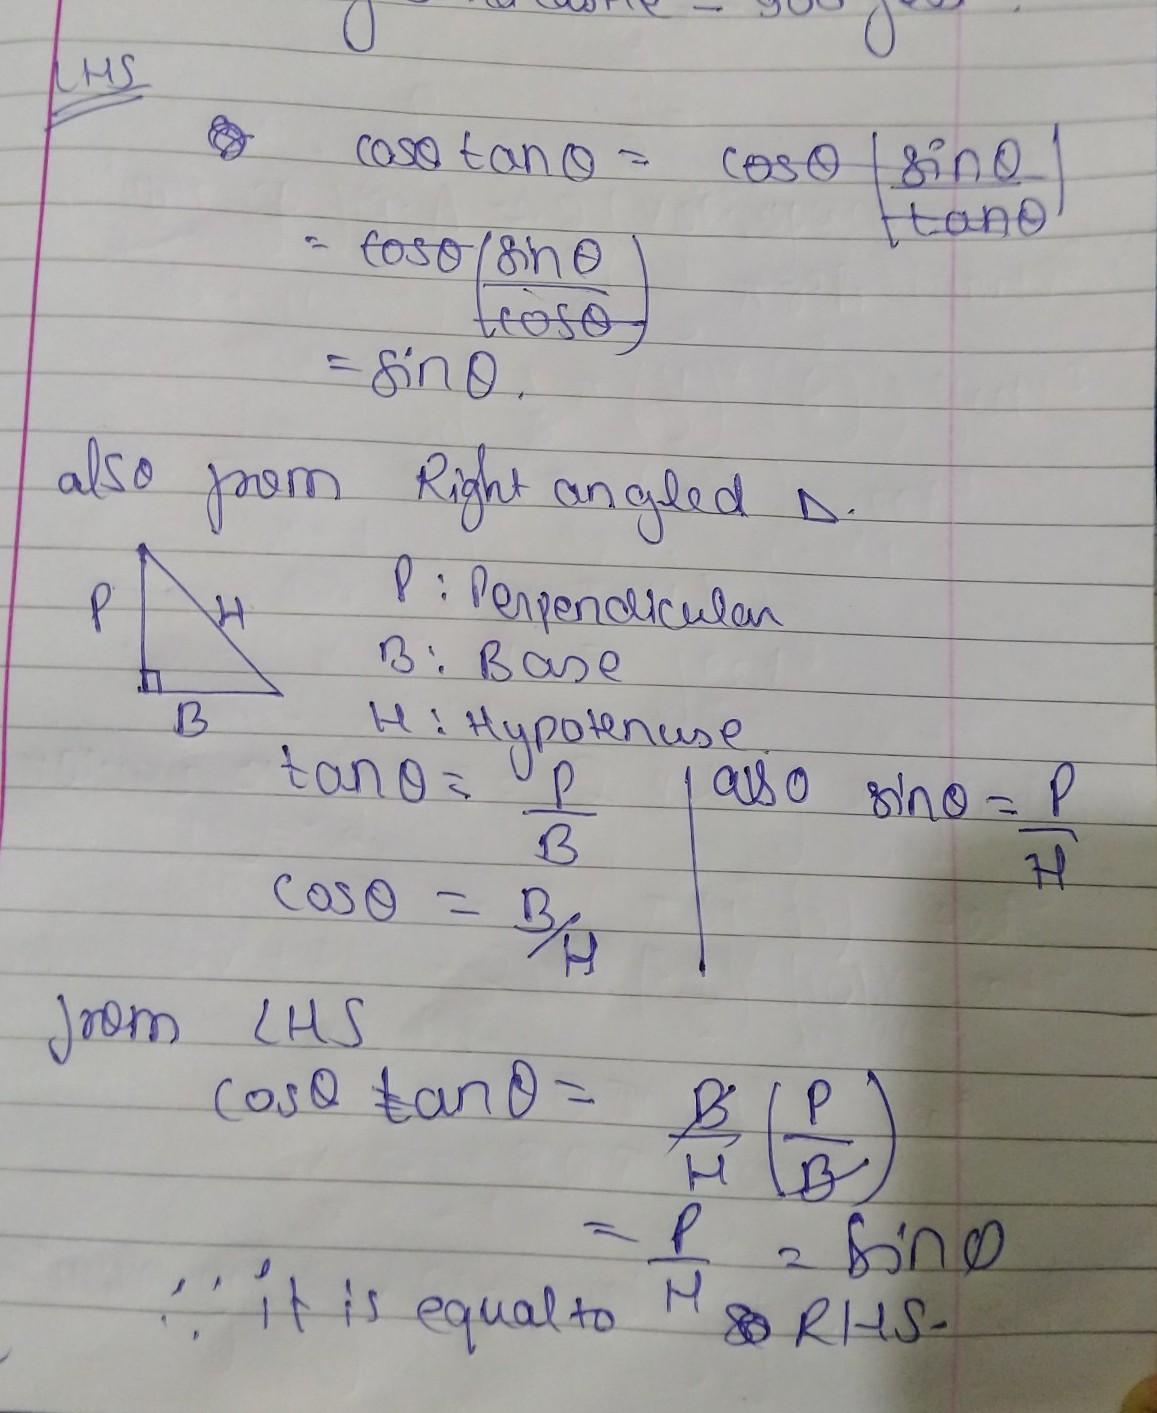 LHS
cosθ tanθ = cosθ (sinθ/tanθ)
= cosθ (sinθ/cosθ)
= sinθ.
also from Right angled △.
P H B
P : Perpendicular
B : Base
H : Hypotenuse
tanθ = P/B | also sinθ = P/H
cosθ = B/H
from LHS
cosθ tanθ = B/H (P/B)
= P/H = sinθ
∵ it is equal to RHS-